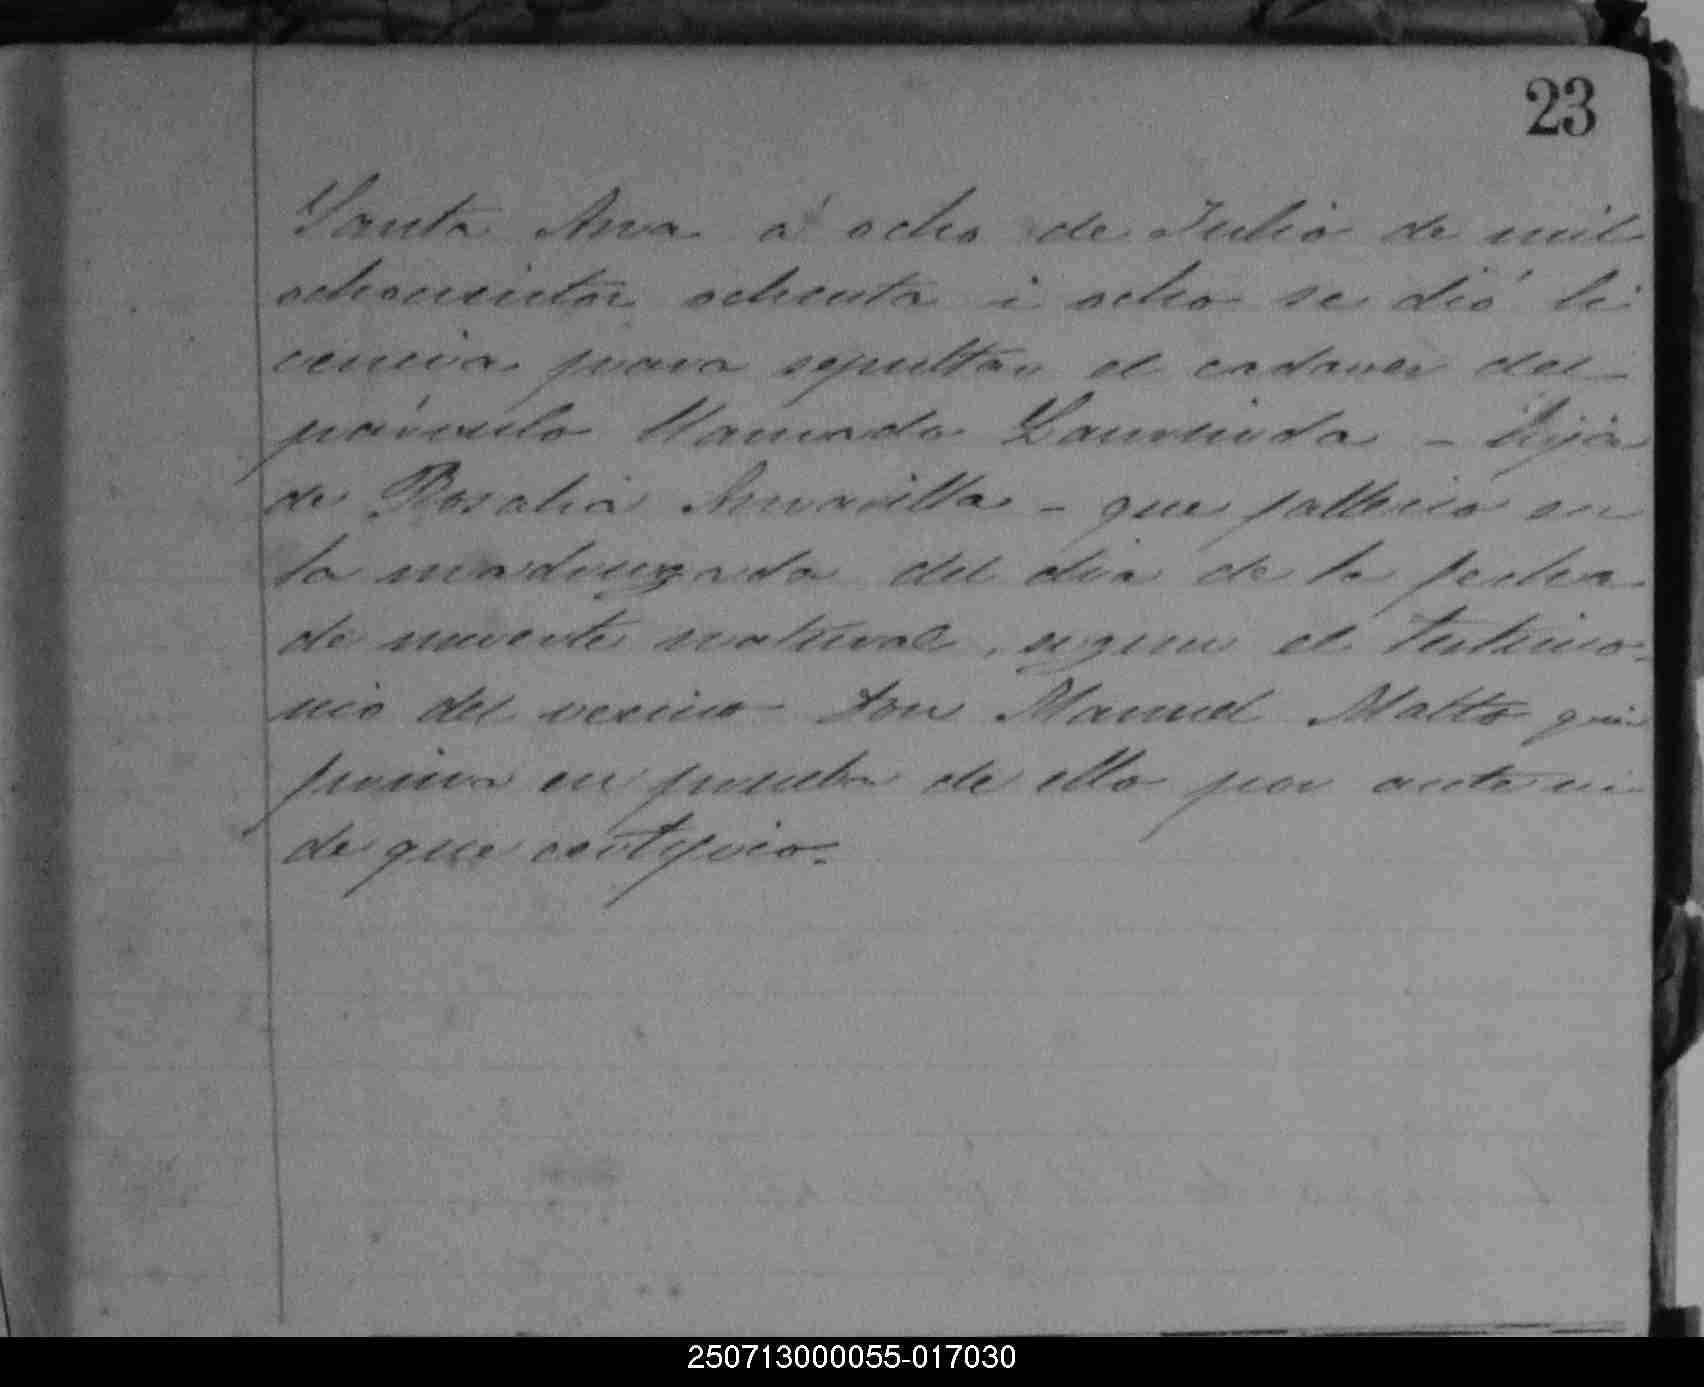 23
Santa Ana á ocho de Julio de mil
ochocientos ochenta i ocho se dió li
cencia para sepultar el cadaver del
párvulo llamado Laurinda - hija
de Rosalia - que fallecio en
la madrugada del dia de la fecha
de muerte natural, segun el testimo-
nio del vecino Don Manuel Matto
en prueba de ello por ante mi
de que certifico.
250713000055-017030